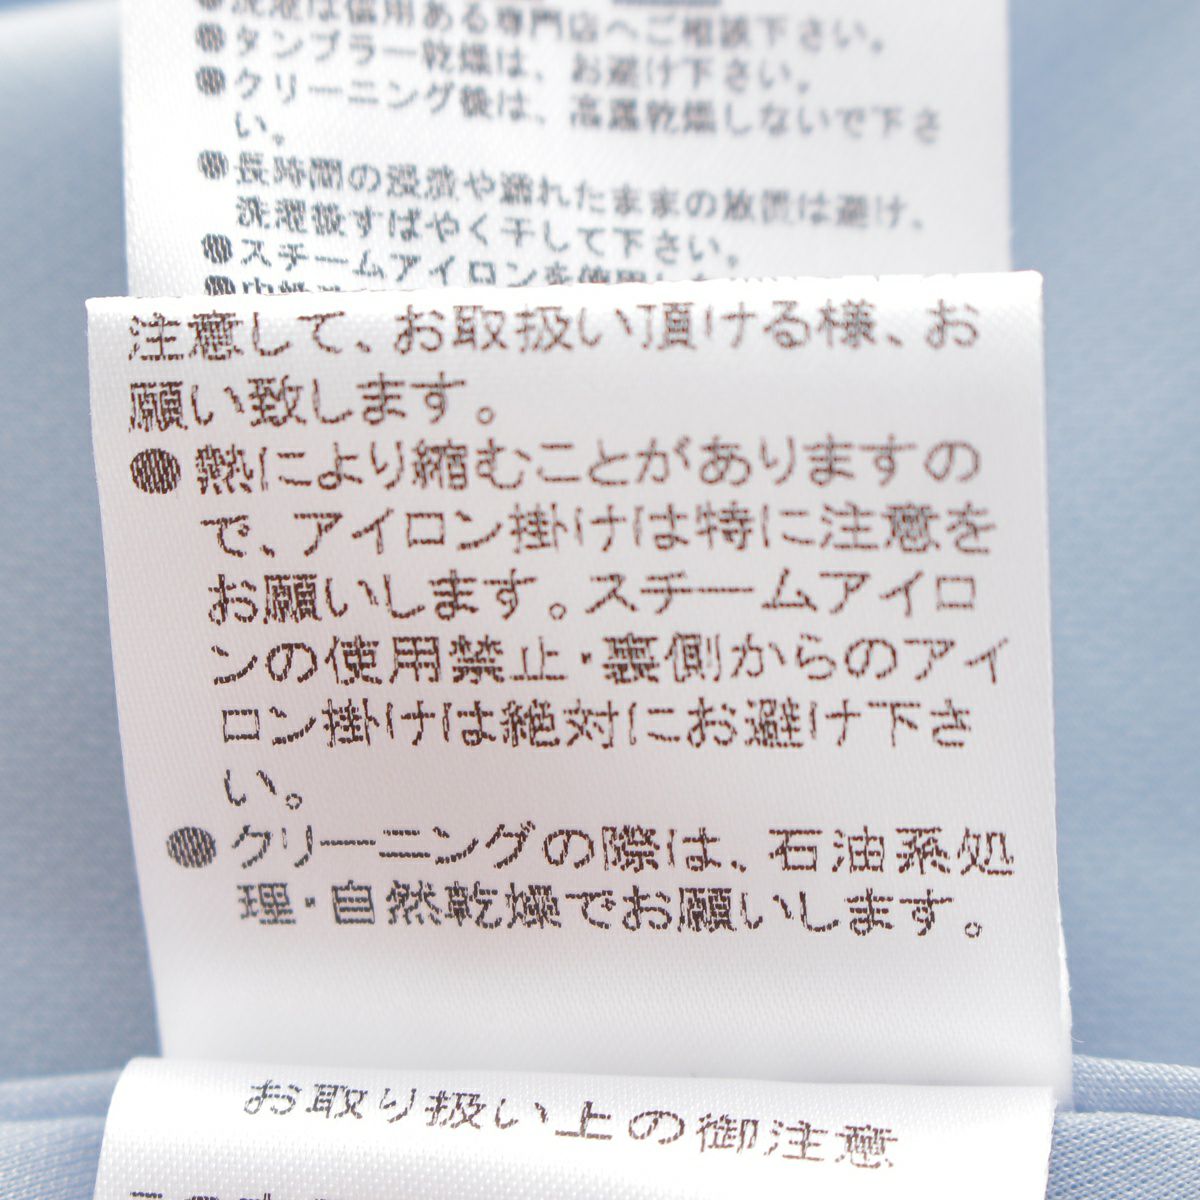 ●洗濯は信用ある専門店へご相談下さい。
●タンブラー乾燥は、お避け下さい。
●クリーニング後は、高温乾燥しないで下さ
い。
●長時間の浸漬や濡れたままの放置は避け、
洗濯後すばやく干して下さい。
●スチームアイロンを使用し
注意して、お取扱い頂ける様、お
願い致します。
●熱により縮むことがありますの
で、アイロン掛けは特に注意を
お願いします。スチームアイロ
ンの使用禁止・裏側からのアイ
ロン掛けは絶対にお避け下さ
い。
●クリーニングの際は、石油系処
理・自然乾燥でお願いします。
お取り扱い上の御注意